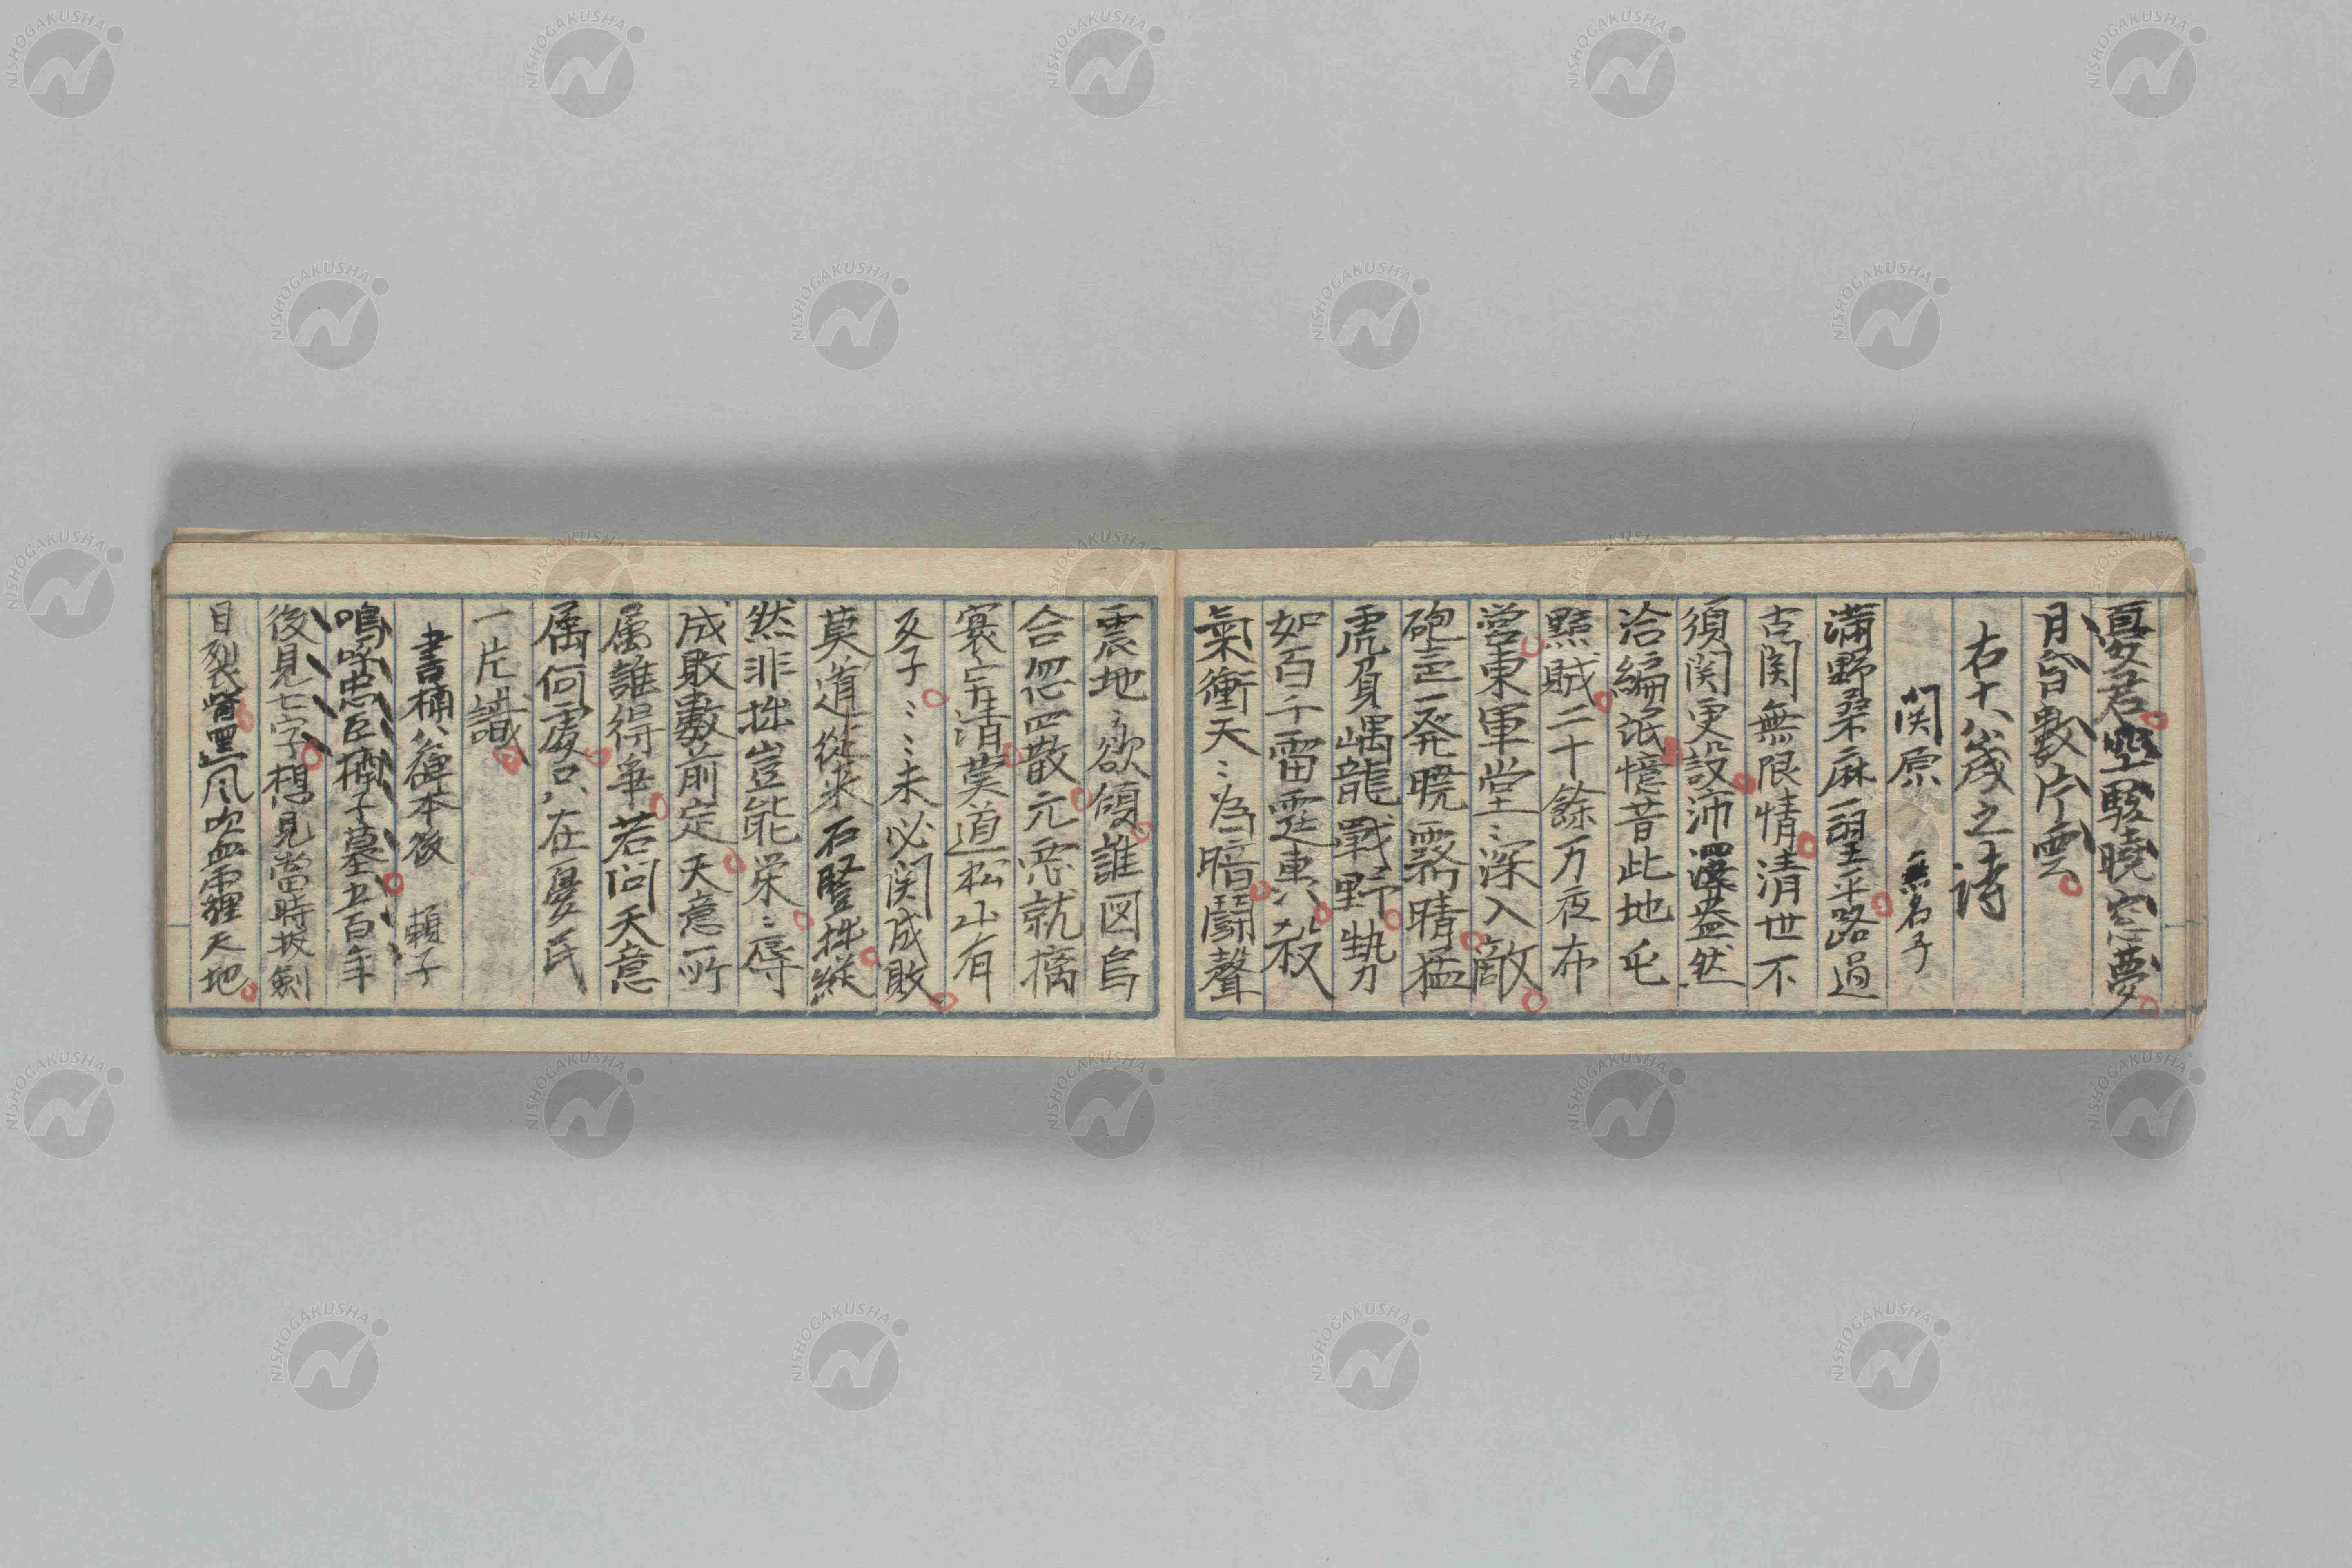 夏君空駿曉窓夢
月台數片雲
右十八歳之詩
関原 無名子
満野桑麻一望平路過
古関無限情清世不
須関更設沛澤益然
洽編氓憶昔此地屯
黠賊二十餘万夜布
営東軍堂〻深入敵
砲声一発暁霧晴猛
虎負嵎龍戰野勢
如百千雷霆車〻殺
氣衝天〻為暗闘聲
震地〻欲傾誰図烏
合忽四散元悪就擒
寰宇清莫道松山有
反子〻〻未必関成敗
莫道従来石豎拙縦
然非拙豈能栄〻辱
成敗數前定天意所
属誰得爭若問天意
属何處只在憂民
一片識
書楠公碑本後 頼子
嗚呼忠臣楠子墓五百年
後見七字想見當時抜劍
目裂眥黒風吹血雷裡天地
NISHOGAKUSHA